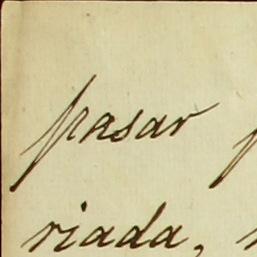 pasar
riada,